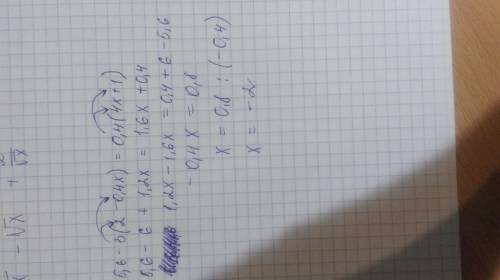 - √x + 2/√x
5,6 - 3(2 - 0,4x) = 0,4(4x+1)
5,6 - 6 + 1,2x = 1,6x + 0,4
1,2x - 1,6x = 0,4 + 6 - 5,6
- 0,4x = 0,8
x = 0,8 : (-0,4)
x = -2